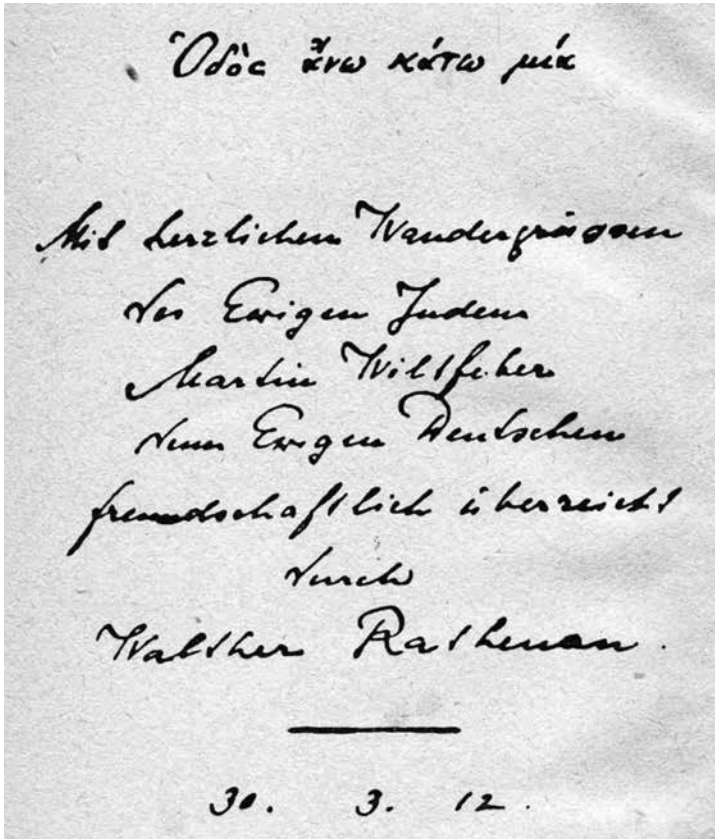 Ὁδὸς ἄνω κάτω μία
Mit herzlichen Wandergrüssen
des Ewigen Juden
Martin Wiltfeber
dem Ewigen Deutschen
freundschaftlich überreicht
durch
Walther Rathenau.
30. 3. 12.